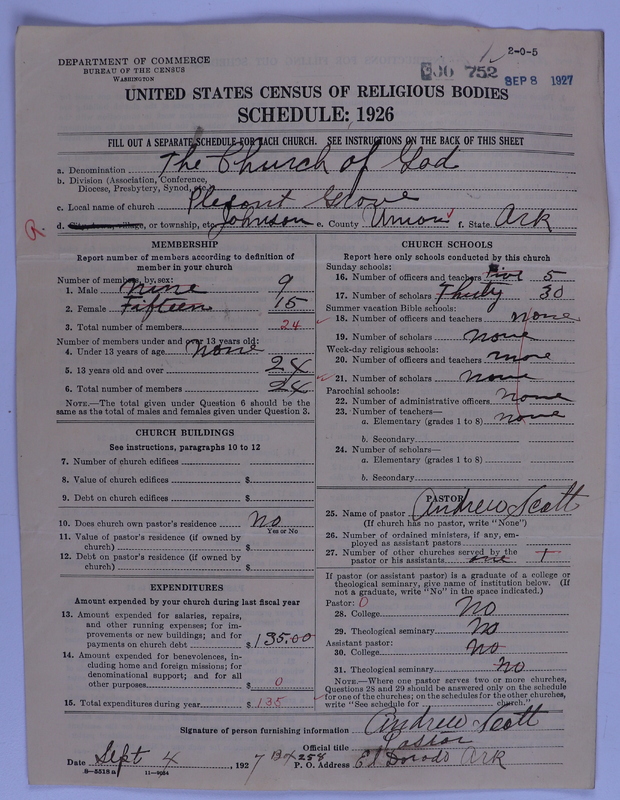 2-0-5
DEPARTMENT OF COMMERCE
BUREAU OF THE CENSUS
WASHINGTON
752 SEP 8 1927
UNITED STATES CENSUS OF RELIGIOUS BODIES
SCHEDULE: 1926
FILL OUT A SEPARATE SCHEDULE FOR EACH CHURCH. SEE INSTRUCTIONS ON THE BACK OF THIS SHEET
a. Denomination The Church of God
b. Division (Association, Conference,
Diocese, Presbytery, Synod, etc.
c. Local name of church Plesant Grove
d. City, town, village, or township, etc. Johnson e. County Union f. State Ark
R.
MEMBERSHIP
Report number of members according to definition of
member in your church
Number of members, by sex:
1. Male Nine 9
2. Female Fifteen 15
3. Total number of members 24
Number of members under and over 13 years old:
4. Under 13 years of age None
5. 13 years old and over 24
6. Total number of members 24
NOTE.—The total given under Question 6 should be the
same as the total of males and females given under Question 3.
CHURCH BUILDINGS
See instructions, paragraphs 10 to 12
7. Number of church edifices
8. Value of church edifices $
9. Debt on church edifices $
10. Does church own pastor's residence No
Yes or No
11. Value of pastor's residence (if owned by
church) $
12. Debt on pastor's residence (if owned by
church) $
EXPENDITURES
Amount expended by your church during last fiscal year
13. Amount expended for salaries, repairs,
and other running expenses; for im-
provements or new buildings; and for
payments on church debt $ 135.00
14. Amount expended for benevolences, in-
cluding home and foreign missions; for
denominational support; and for all
other purposes $ 0
15. Total expenditures during year $ 135
CHURCH SCHOOLS
Report here only schools conducted by this church
Sunday schools:
16. Number of officers and teachers Five 5
17. Number of scholars Thirty 30
Summer vacation Bible schools:
18. Number of officers and teachers none
19. Number of scholars none
Week-day religious schools:
20. Number of officers and teachers none
21. Number of scholars none
Parochial schools:
22. Number of administrative officers none
23. Number of teachers—
a. Elementary (grades 1 to 8) none
b. Secondary
24. Number of scholars—
a. Elementary (grades 1 to 8)
b. Secondary
PASTOR
25. Name of pastor Andrew Scott
(If church has no pastor, write "None")
26. Number of ordained ministers, if any, em-
ployed as assistant pastors
27. Number of other churches served by the
pastor or his assistants one 1
If pastor (or assistant pastor) is a graduate of a college or
theological seminary, give name of institution below. (If
not a graduate, write "No" in the space indicated.)
Pastor: 0
28. College No
29. Theological seminary No
Assistant pastor:
30. College No
31. Theological seminary No
NOTE.—Where one pastor serves two or more churches,
Questions 28 and 29 should be answered only on the schedule
for one of the churches; on the schedules for the other churches,
write "See schedule for church."
Signature of person furnishing information Andrew Scott
Official title Pastor
Date Sept 4, 1927 Bx 258 P. O. Address El Dorado Ark
11—9064